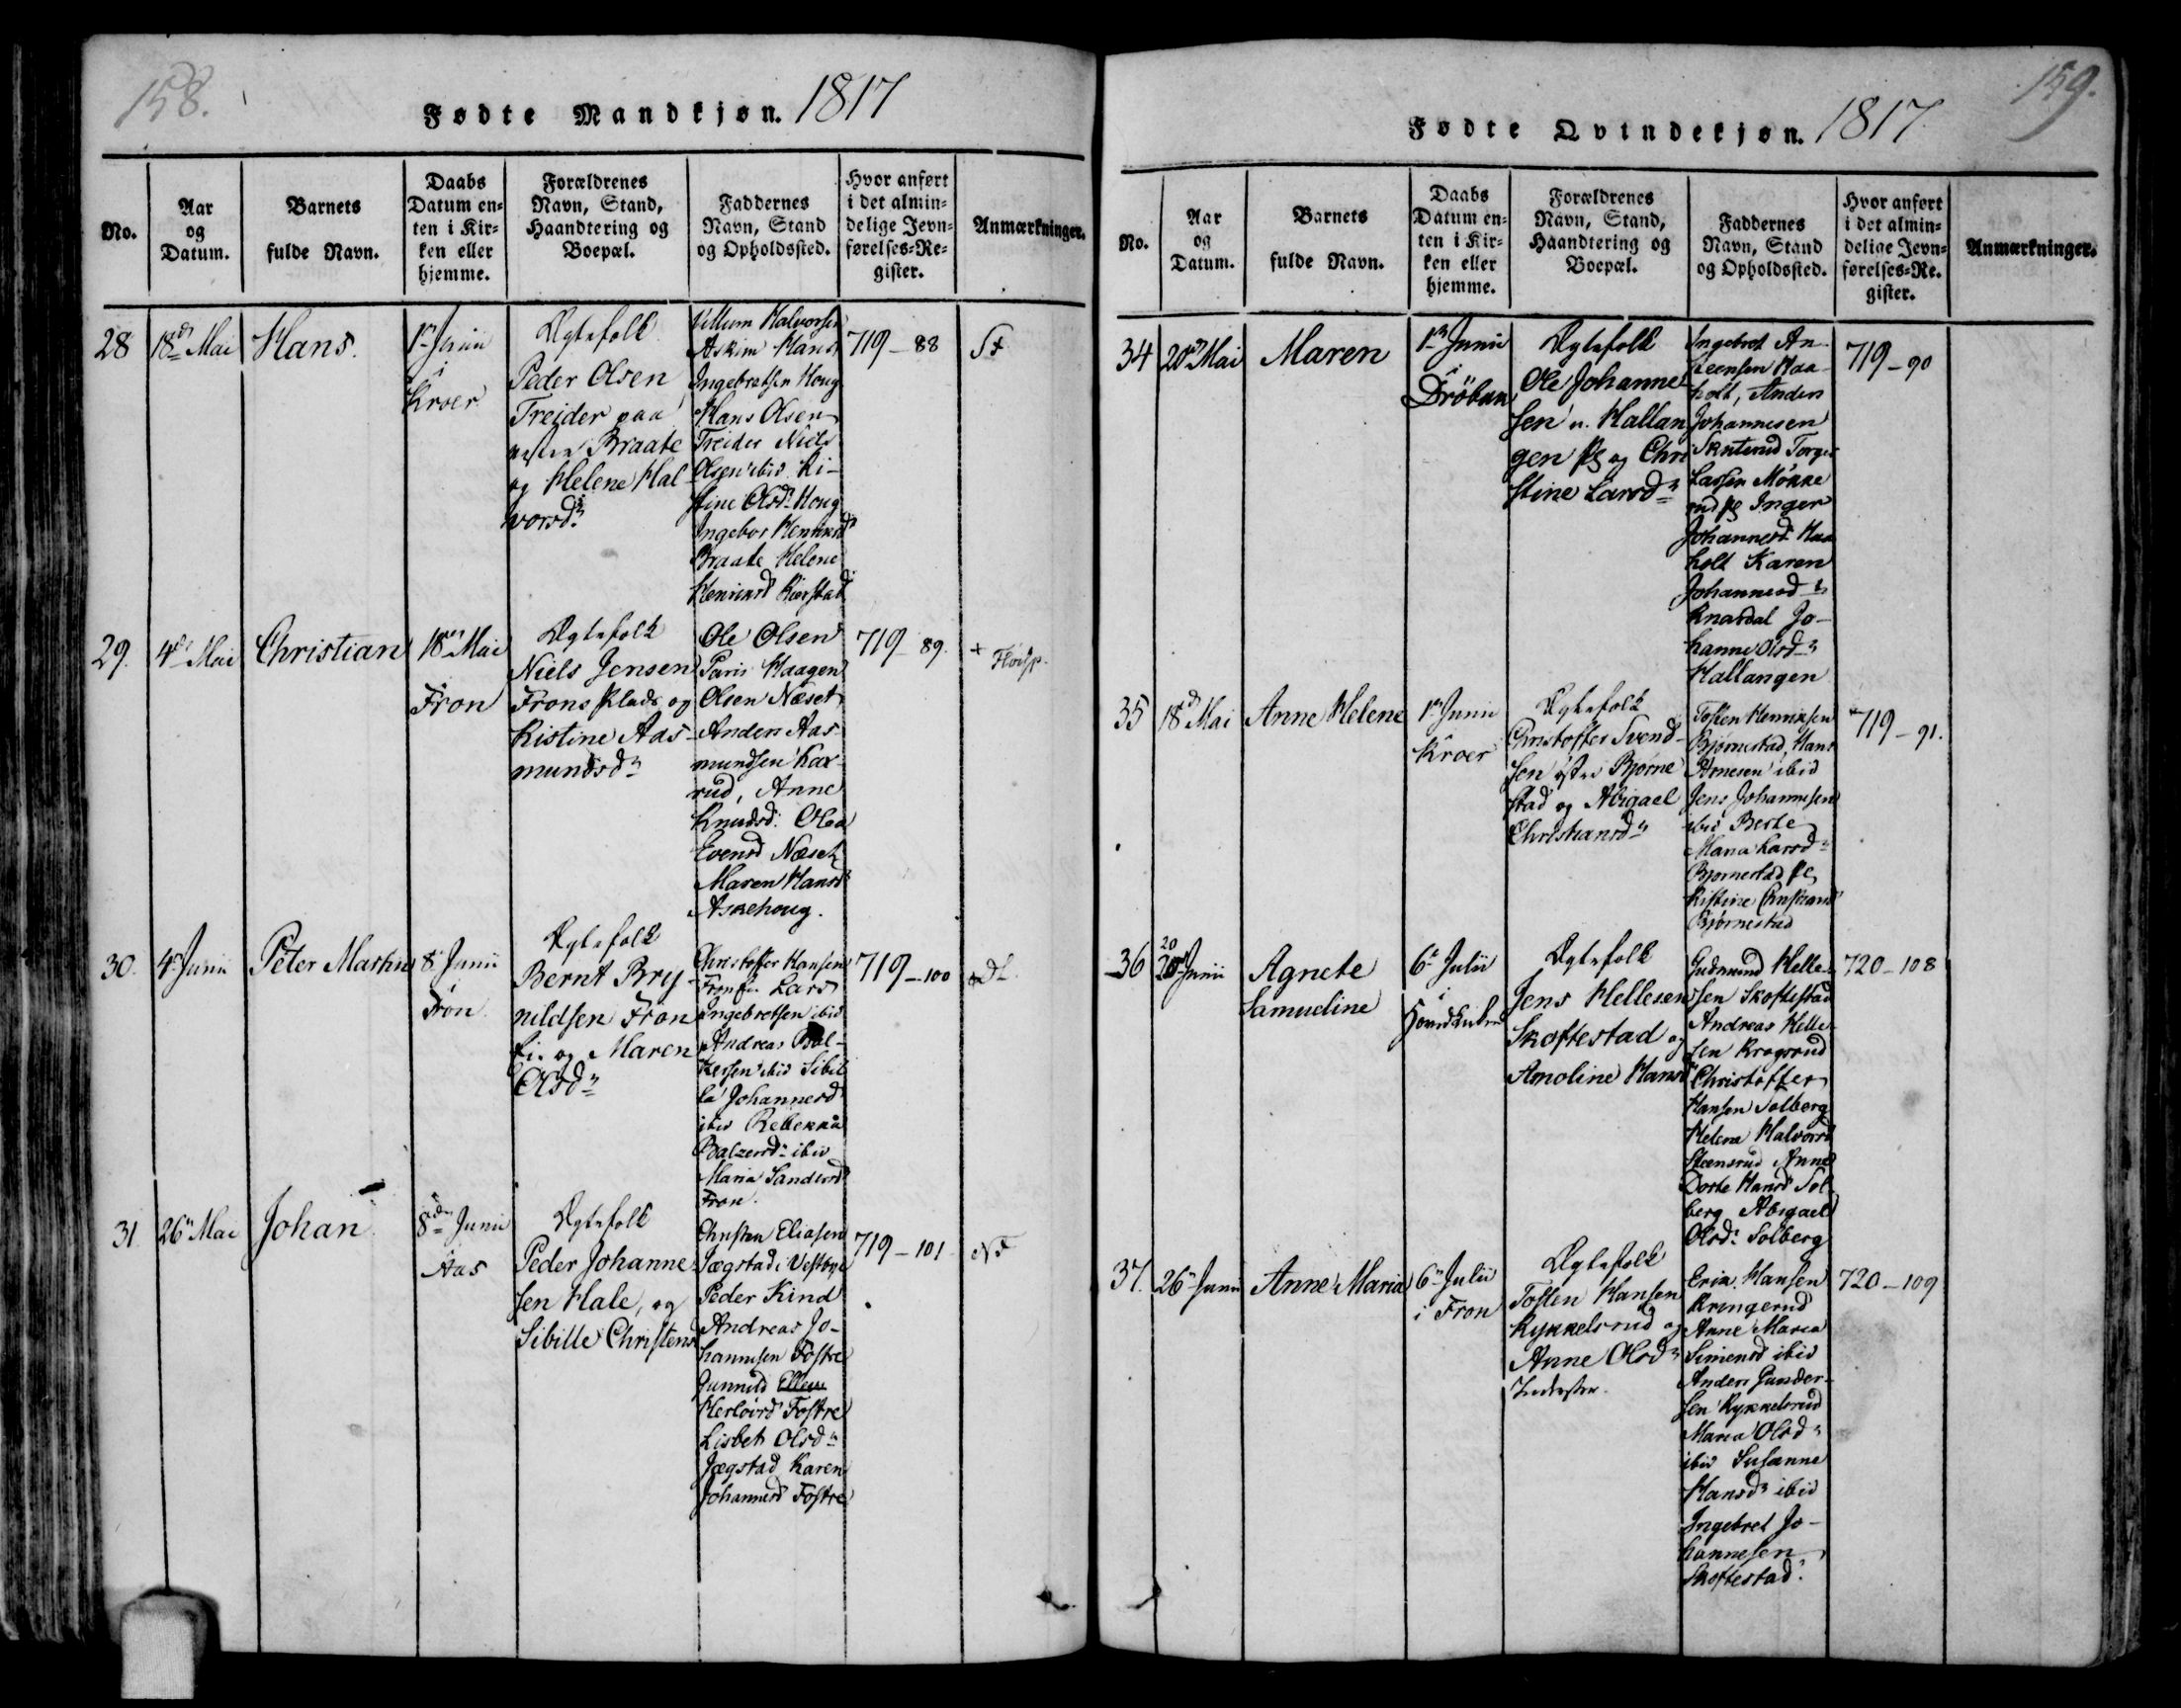 158.
Fødte Mandkjøn. 1817
No.
Aar
og
Datum.
Barnets
fulde Navn.
Daabs
Datum en-
ten i Kir-
ken eller
hjemme.
Forældrenes
Navn, Stand,
Haandtering og
Boepæl.
Faddernes
Navn, Stand
og Opholdssted.
Hvor anført
i det almin-
delige Jevn-
førelses-Re-
gister.
Anmærkninger.
28
18de Mai
Hans.
1n Junii
i
Kroer
Ægtefolk
Peder Olsen
Treider paa
Braate
og Helene Hal
vorsdr
Villum Halvorsen
Askim Hans
Ingebretsen Houg
Hans Olsen
Treider Niels
Olsen ibid Ki-
stine Olsdr Houg
Ingebor Henriksdr
Braate Helene
Henriksd Kierstad
719 - 88
29.
4de Mai
Christian
18de Mai
Fron
Ægtefolk
Niels Jensen
Frons Plads og
Kistine Aas-
mundsdr
Ole Olsen
Paris Haagen
Olsen Næset
Anders Aas-
mundsen Kax-
rud, Anne
Knudsd: Olea
Evensd Næset
Maren Hansdr
Askehoug.
719 - 89.
+
30.
4de Junii
Peter Martin
8de Junii
i
Fron
Ægtefolk
Bernt Bry-
nildsen Fron
Ei. og Maren
Olsdr
Christoffer Hansen
Fron Ei. Lars
Ingebretsen ibid
Andreas Bal-
zersen ibid Sibil
la Johannesd
ibid Rebekka
Balzersdr ibid
Maria Sandersdr
Fron.
719 - 100
31.
26n Mai
Johan
8de Junii
Aas
Ægtefolk
Peder Johanne
sen Hale, og
Sibille Christensd
Christen Eliasen
Jægstad i Vestbye
Peder Kind
Andreas Jo-
hannesen Fostre
Gunnild Ellens
Herløvsd Fostre
Lisbet Olsdr
Jægstad Karen
Johannesd Fostre
719 - 101
NF
159.
Fødte Qvindekjøn. 1817.
No.
Aar
og
Datum.
Barnets
fulde Navn.
Daabs
Datum en-
ten i Kir-
ken eller
hjemme.
Forældrenes
Navn, Stand,
Haandtering og
Boepæl.
Faddernes
Navn, Stand
og Opholdssted.
Hvor anført
i det almin-
delige Jevn-
førelses-Re-
gister.
Anmærkninger.
34
20de Mai
Maren
1n Junii
i
Dröbak
Ægtefolk
Ole Johanne
sen n. Hallan
gen Pl og Chri
stine Larsdr
Ingebret An-
steensen Haa-
holt, Anders
Johannesen
Skuterud Torger
Larsen Mökke
rud Pl Inger
Johannesd Haa
holt Karen
Johannesdr
Knardal Jo-
hanne Olsdr
Hallangen
719 - 90
35
18de Mai
Anne Helene
1n Junii
i
Kroer
Ægtefolk
Christoffer Svend-
sen östre Bjørne
stad og Abigael
Christiansdr
Tosten Henriksen
Bjørnestad, Hans
Arnesen ibid
Jens Johannesen
ibid Berte
Maria Larsdr
Bjørnestad Pl
Kistine Christians
Bjørnestad
719 - 91.
36
20
20de Junii
Agnete
Samueline
6n Julii
i
Ægtefolk
Jens Hellesen
Skoftestad og
Amoline Hansd
Gudmund Helle-
sen Skoftestad
Andreas Helle-
sen Krogsrud
Christoffer
Hansen Solberg
Helena Halvorsd
Steensrud Anne
Dorte Hansd Sol
berg Abigael
Olsdr Solberg
720 - 108
37.
26n Junii
Anne Maria
6n Julii
i Fron
Ægtefolk
Tosten Hansen
Kykkelsrud og
Anne Olsdr
Inderster.
Erik Hansen
Kringerud
Anne Maria
Simensd ibid
Anders Gunder-
sen Kykkelsrud
Maria Olsdr
ibid Susanne
Hansdr ibid
Ingebret Jo-
hannesen
Skoftestad.
720 - 109